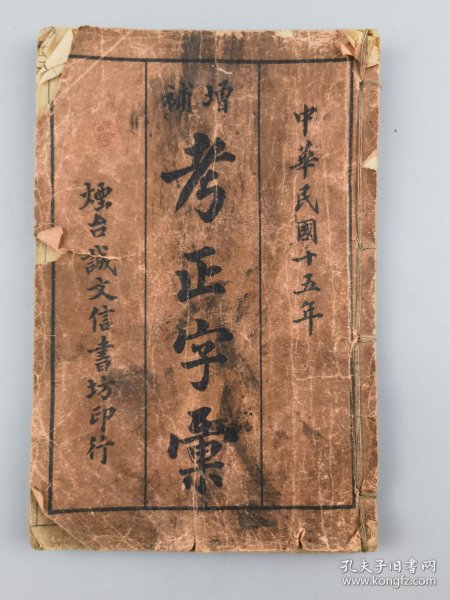 中華民國十五年
增補
考正字彙
煙台誠文信書坊印行
孔夫子旧书网
www.kongfz.com